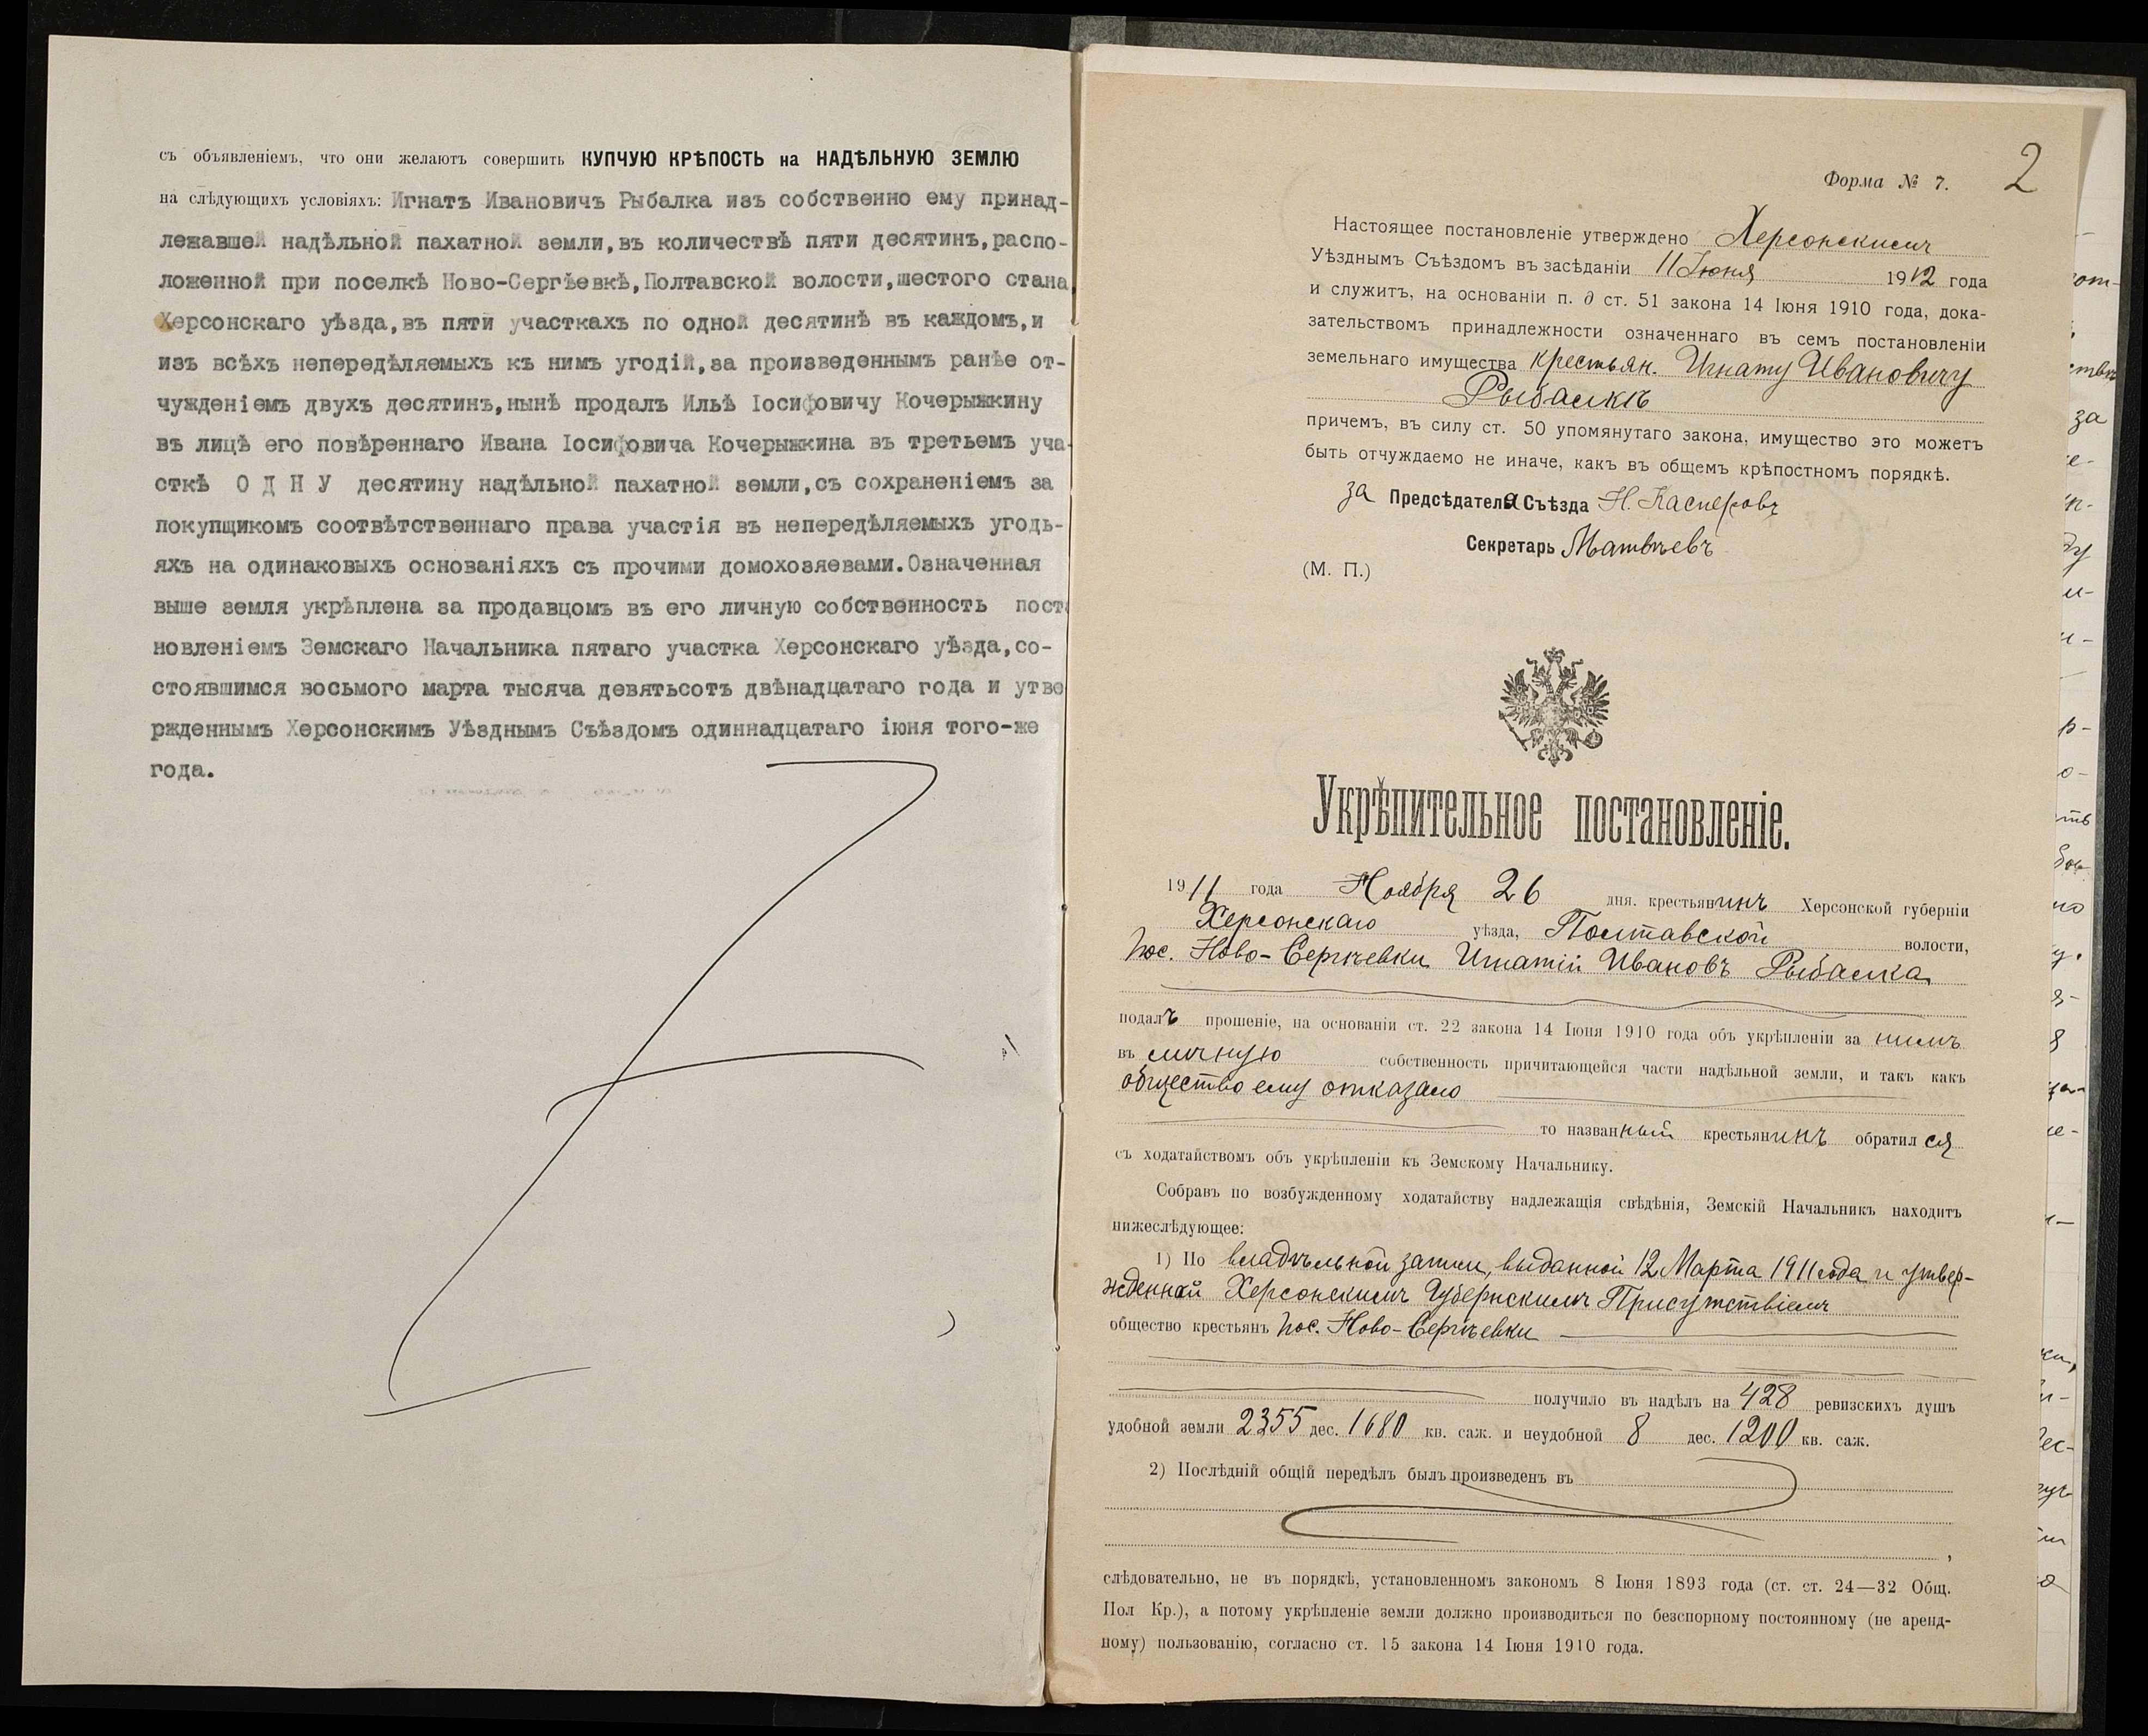 съ объявленіемъ, что они желаютъ совершить КУПЧУЮ КРѢПОСТЬ на НАДѢЛЬНУЮ ЗЕМЛЮ
на слѣдующихъ условіяхъ: Игнатъ Ивановичъ Рыбалка изъ собственно ему принад-
лежавшей надѣльной пахатной земли,въ количествѣ пяти десятинъ,распо-
ложенной при поселкѣ Ново-Сергѣевкѣ,Полтавской волости,шестого стана,
Херсонскаго уѣзда,въ пяти участкахъ по одной десятинѣ въ каждомъ,и
изъ всѣхъ непередѣляемыхъ къ нимъ угодій,за произведеннымъ ранѣе от-
чужденіемъ двухъ десятинъ,нынѣ продалъ Ильѣ Іосифовичу Кочерыжкину
въ лицѣ его повѣреннаго Ивана Іосифовича Кочерыжкина въ третьемъ уча-
сткѣ О Д Н У десятину надѣльной пахатной земли,съ сохраненіемъ за
покупщикомъ соотвѣтственнаго права участія въ непередѣляемыхъ угодь-
яхъ на одинаковыхъ основаніяхъ съ прочими домохозяевами.Означенная
выше земля укрѣплена за продавцомъ въ его личную собственность поста
новленіемъ Земскаго Начальника пятаго участка Херсонскаго уѣзда,со-
стоявшимся восьмого марта тысяча девятьсотъ двѣнадцатаго года и утве
ржденнымъ Херсонскимъ Уѣзднымъ Съѣздомъ одиннадцатаго іюня того-же
года.
2
Форма № 7.
Настоящее постановленіе утверждено Херсонскимъ
Уѣзднымъ Съѣздомъ въ засѣданіи 11 Іюня 1912 года
и служитъ, на основаніи п. д ст. 51 закона 14 Іюня 1910 года, дока-
зательствомъ принадлежности означеннаго въ семъ постановленіи
земельнаго имущества крестьян. Игнату Ивановичу
Рыбалкѣ
причемъ, въ силу ст. 50 упомянутаго закона, имущество это можетъ
быть отчуждаемо не иначе, какъ въ общемъ крѣпостномъ порядкѣ.
за Предсѣдателя Съѣзда Н. Касперовъ
Секретарь Матвѣевъ
(М. П.)
Укрѣпительное постановленіе.
1911 года Ноября 26 дня. крестьянинъ Херсонской губерніи
Херсонскаго уѣзда, Полтавской волости,
пос. Ново-Сергѣевки Игнатій Ивановъ Рыбалка
подалъ прошеніе, на основаніи ст. 22 закона 14 Іюня 1910 года объ укрѣпленіи за нимъ
въ личную собственность причитающейся части надѣльной земли, и такъ какъ
общество ему отказало
то названный крестьянинъ обратился
съ ходатайствомъ объ укрѣпленіи къ Земскому Начальнику.
Собравъ по возбужденному ходатайству надлежащія свѣдѣнія, Земскій Начальникъ находитъ
нижеслѣдующее:
1) По владѣльной записи, выданной 12 Марта 1911 года и утвер-
жденной Херсонскимъ Губернскимъ Присутствіемъ
общество крестьянъ пос. Ново-Сергѣевки
получило въ надѣлъ на 428 ревизскихъ душъ
удобной земли 2355 дес. 1680 кв. саж. и неудобной 8 дес. 1200 кв. саж.
2) Послѣдній общій передѣлъ былъ произведенъ въ
,
слѣдовательно, не въ порядкѣ, установленномъ закономъ 8 Іюня 1893 года (ст. ст. 24—32 Общ.
Пол Кр.), а потому укрѣпленіе земли должно производиться по безспорному постоянному (не аренд-
ному) пользованію, согласно ст. 15 закона 14 Іюня 1910 года.